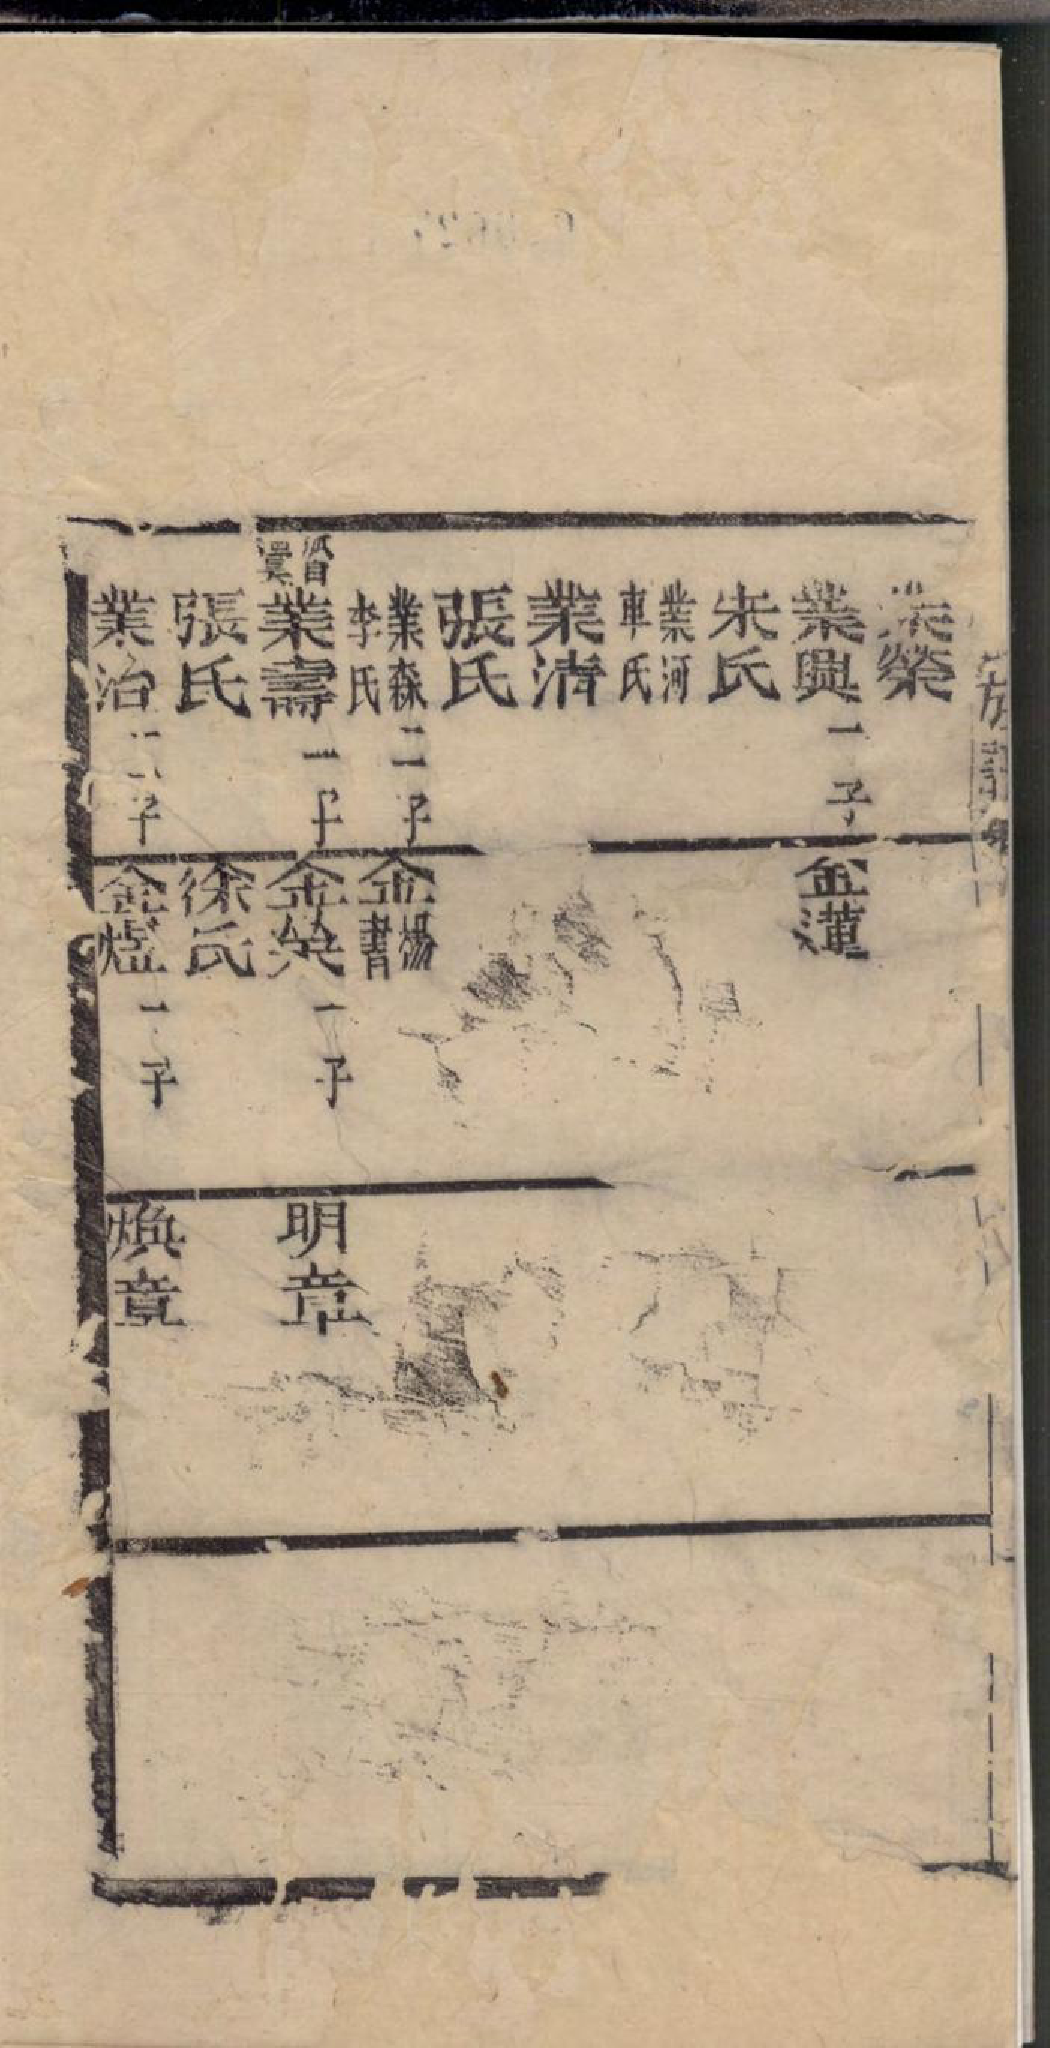 族譜
業榮
業興 一子
朱氏
業河
車氏
業清
張氏
業森 二子
李氏
業壽 一子
張氏
業治 二子
金蓮
金楊
金書
金榮 一子
徐氏
金煃 一子
明章
煥章